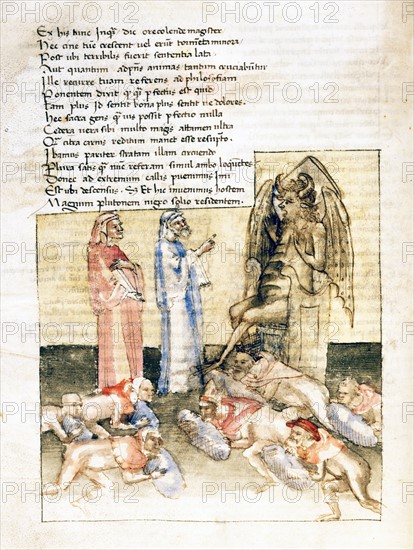 Ex his nunc inquam dic o recolende magister
Hec cine tunc crescent vel erunt tormenta minora
Post ubi terribilis fuerit sententia lata
Aut quantum ad penas animas tantum cruciabuntur
Ille require tuam referens ad philosophiam
Ponentem divit quod quo perfectius est quid
Tam plus id sentit bona plus sentit ve dolores
Hec sacra gens quamvis possit perfectio nulla
Cedere vera sibi multo magis attamen ultra
Quam citra cuius reditum manet esse
Ibamus pariter stratam illam
Plura satis que nunc referam simul ambo loquentes
Donec ad extremum callis pervenimus imi
Est ubi descensus. Et hic invenimus hostem
Magnum plutonem nigro solio residentem.